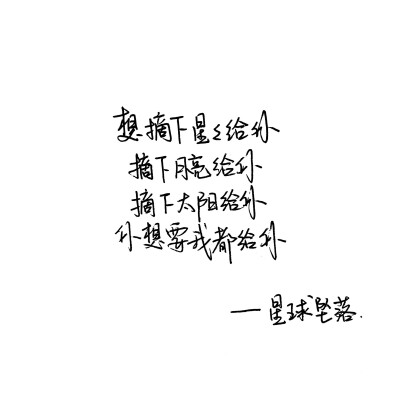 想摘下星々给你
摘下月亮给你
摘下太阳给你
你想要我都给你
——星球坠落.